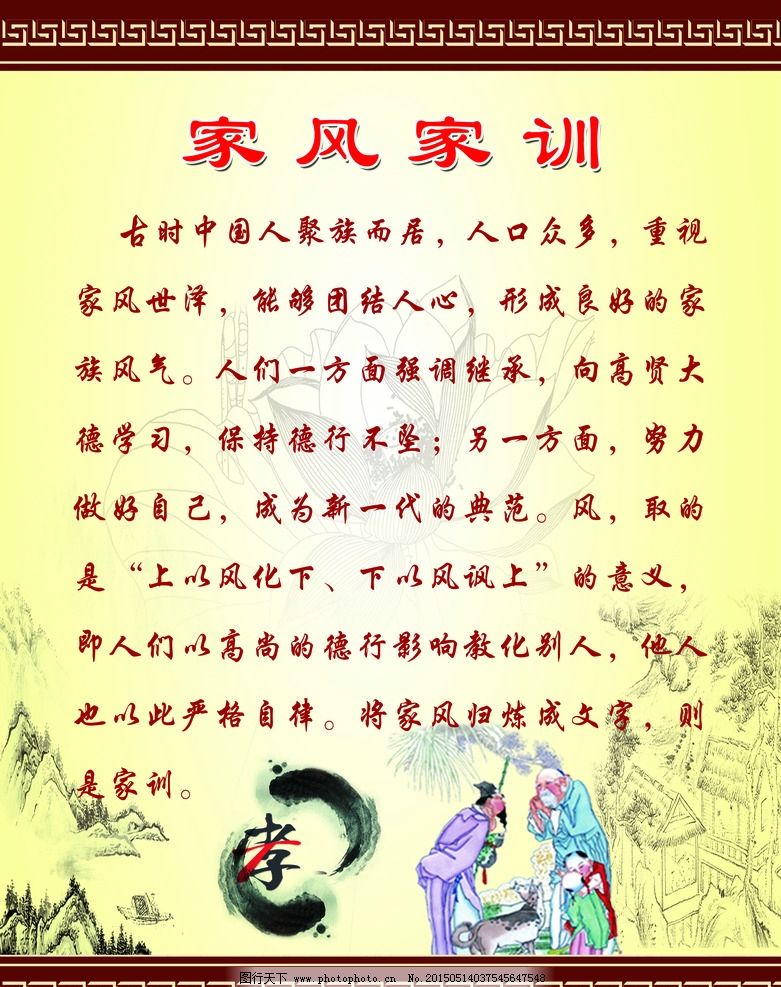 家风家训
古时中国人聚族而居，人口众多，重视
家风世泽，能够团结人心，形成良好的家
族风气。人们一方面强调继承，向高贤大
德学习，保持德行不坠；另一方面，努力
做好自己，成为新一代的典范。风，取的
是“上以风化下、下以风讽上”的意义，
即人们以高尚的德行影响教化别人，他人
也以此严格自律。将家风归炼成文字，则
是家训。
孝
图行天下 www.photophoto.cn No.20150514037545647548